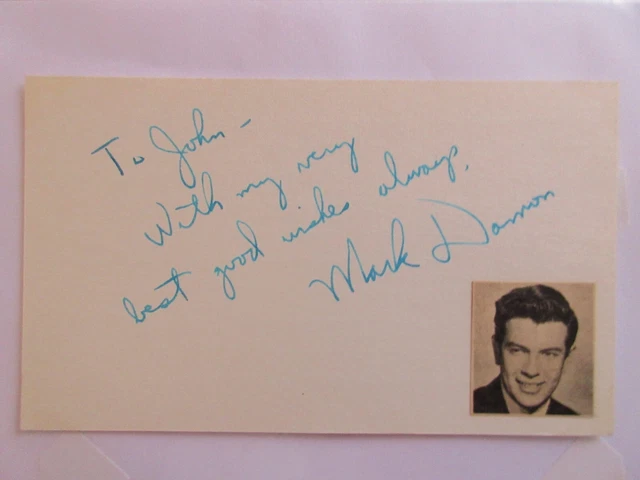 To John -
With my very
best good wishes always,
Mark Damon